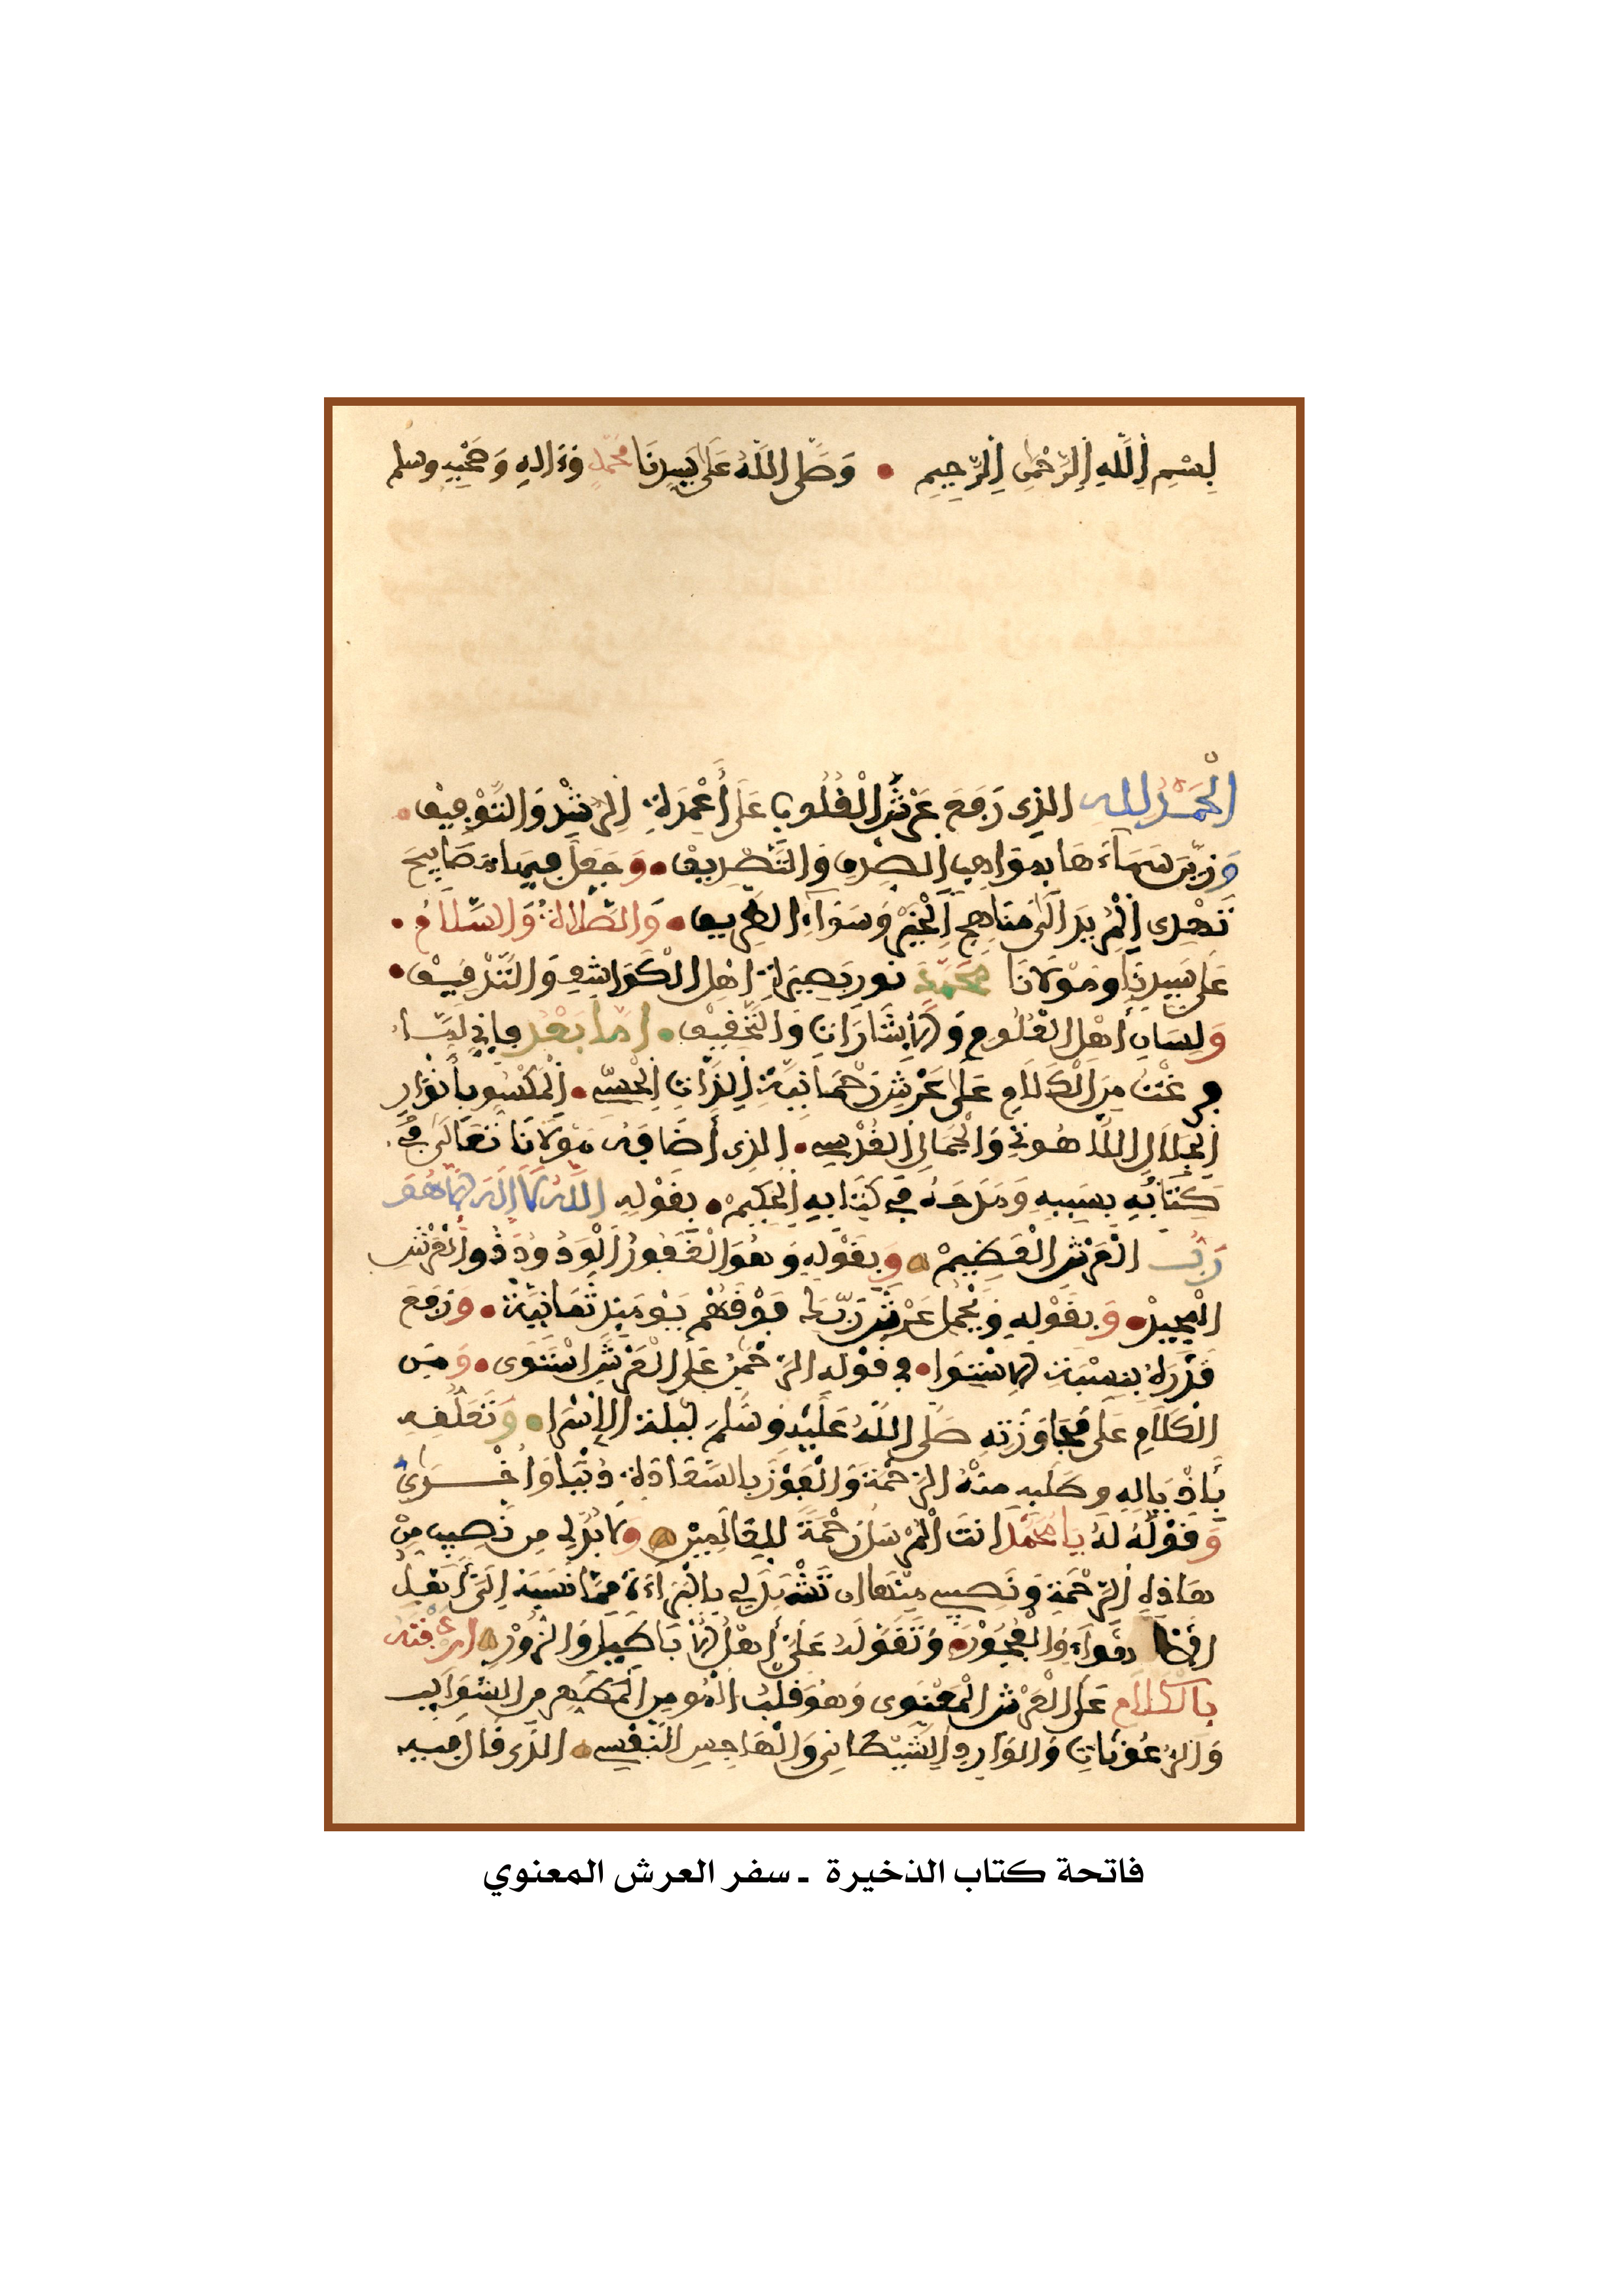 بِسْمِ اِللَّهِ اِلرَّحْمٰنِ اِلرَّحِيمِ • وَصَلَّى اللَّهُ عَلَى سَيِّدِنَا مُحَمَّدٍ وَءَالِهِ وَصَحْبِهِ وسلم
الْحَمْدُ لله الذِي رَفَعَ عَرْشَ الْقُلُوبِ عَلَى أَعْمِدَةِ الرُّشْدِ وَالتَّوْفِيقِ •
وَزَيَّنَ سَمَاءَهَا بمَوَاهِبِ الصِّدْقِ وَالتَّصْدِيقِ • وَجَعَلَ فِيهَا مَصَابِيحَ
تَهْدِي اِلْمُرِيدَ اِلَى مَنَاهِجِ اِلْخَيْرِ وَسَوَاءِ الطَّرِيقِ • وَالصَّلَاةُ وَالسَّلَامُ •
عَلَى سَيِّدِنَا ومَوْلَانَا مُحَمَّدٍ نور بَصِيرَةِ اهْلِ الْكَوَاشِفِ وَالتَّدْقِيقِ •
وَلِسَانِ أَهْلِ الْعُلُومِ وَالْإِشَارَاتِ وَالتَّحْقِيقِ • امَّا بَعْد فإني لَمَّا
فرغْتُ مِنَ الْكَلَامِ عَلَى عَرْشِ رَحْمَانِيَّةِ اِلذَّاتِ اِلْحِسِّي • اِلْمَكْسُوِ بأَنْوَارِ
اِلْجَلَالِ اللَّاهُوتِيِّ وَالْجَمَالِ اِلْقُدْسِي • الذِي أَضَافَهُ مَوْلَانَا تَعَالَى في
كِتَابِهِ بِسَبَبِهِ وَمَدَحَهُ فِي كِتَابِهِ اِلْحَكِيمْ • بِقَوْلِهِ اللَّهُ لَا إِلَهَ إِلَّا هُوَ
رَبُّ الْعَرْشِ الْعَظِيمْ وَبِقَوْلِهِ وَهُوَ الْغَفُورُ اَلْوَدُودُ ذُو اَلْعَرْشِ
الْمَجِيدْ • وَبِقَوْلِهِ وَيَحْمِلُ عَرْشَ رَبِّكَ فَوْقَهُمْ يَوْمَئِذٍ ثَمَانِيَةٌ • وَرَفَعَ
قَدْرَهُ بِنِسْبَةِ الِاسْتِوَا • فِي قَوْلِهِ الرَّحْمَنُ عَلَى الْعَرْشِ اسْتَوَى • وَمِنَ
الْكَلَامِ عَلَى مُجَاوَزَتِهِ صَلَّى اللَّهُ عَلَيْهِ وَسَلَّمَ لَيْلَةَ الإِسْرَا • وَتَعَلُّقِهِ
بِأَذْيَالِهِ وطَلَبِهِ مِنْهُ الرَّحْمَةَ وَالْفَوْزَ بِالسَّعَادَةِ دُنْيَا وَأُخْرَى
وَقَوْلُهُ لَهُ يَا مُحَمَّد انتَ الْمُرْسَلُ رَحْمَةً لِلْعَالَمِينْ وَلَا بُدَّ لِي مِن نَصِيبٍ مِنْ
هَاذِهِ اِلرَّحْمَةِ وَنَصِيبِي مِنْهَا ان تَشْهَدَ لِي بِالْبَرَاءَةِ مِمَّا نَسَبَهُ إِلَيَّ أَهْلُ
وَالْفُجُورْ • وَتَقَوَّلَهُ عَلَيَّ أَهْلُ الْأَبَاطِيلِ وَالزُّورْ ارْدَفْتُهُ
بِالْكَلَامِ عَلَى الْعَرْشِ الْمَعْنَوِي وَهُوَ قَلْبُ الْمُومِنِ الْمُطَهَّرِ مِنَ الشَّوَائِبِ
وَالرُّعُونَاتِ وَالْوَارِدِ اِلشَّيْطَانِي وَالْهَاجِسِ النَّفْسِي الذي قَالَ فِيهِ
فاتحة كتاب الذخيرة ـ سفر العرش المعنوي